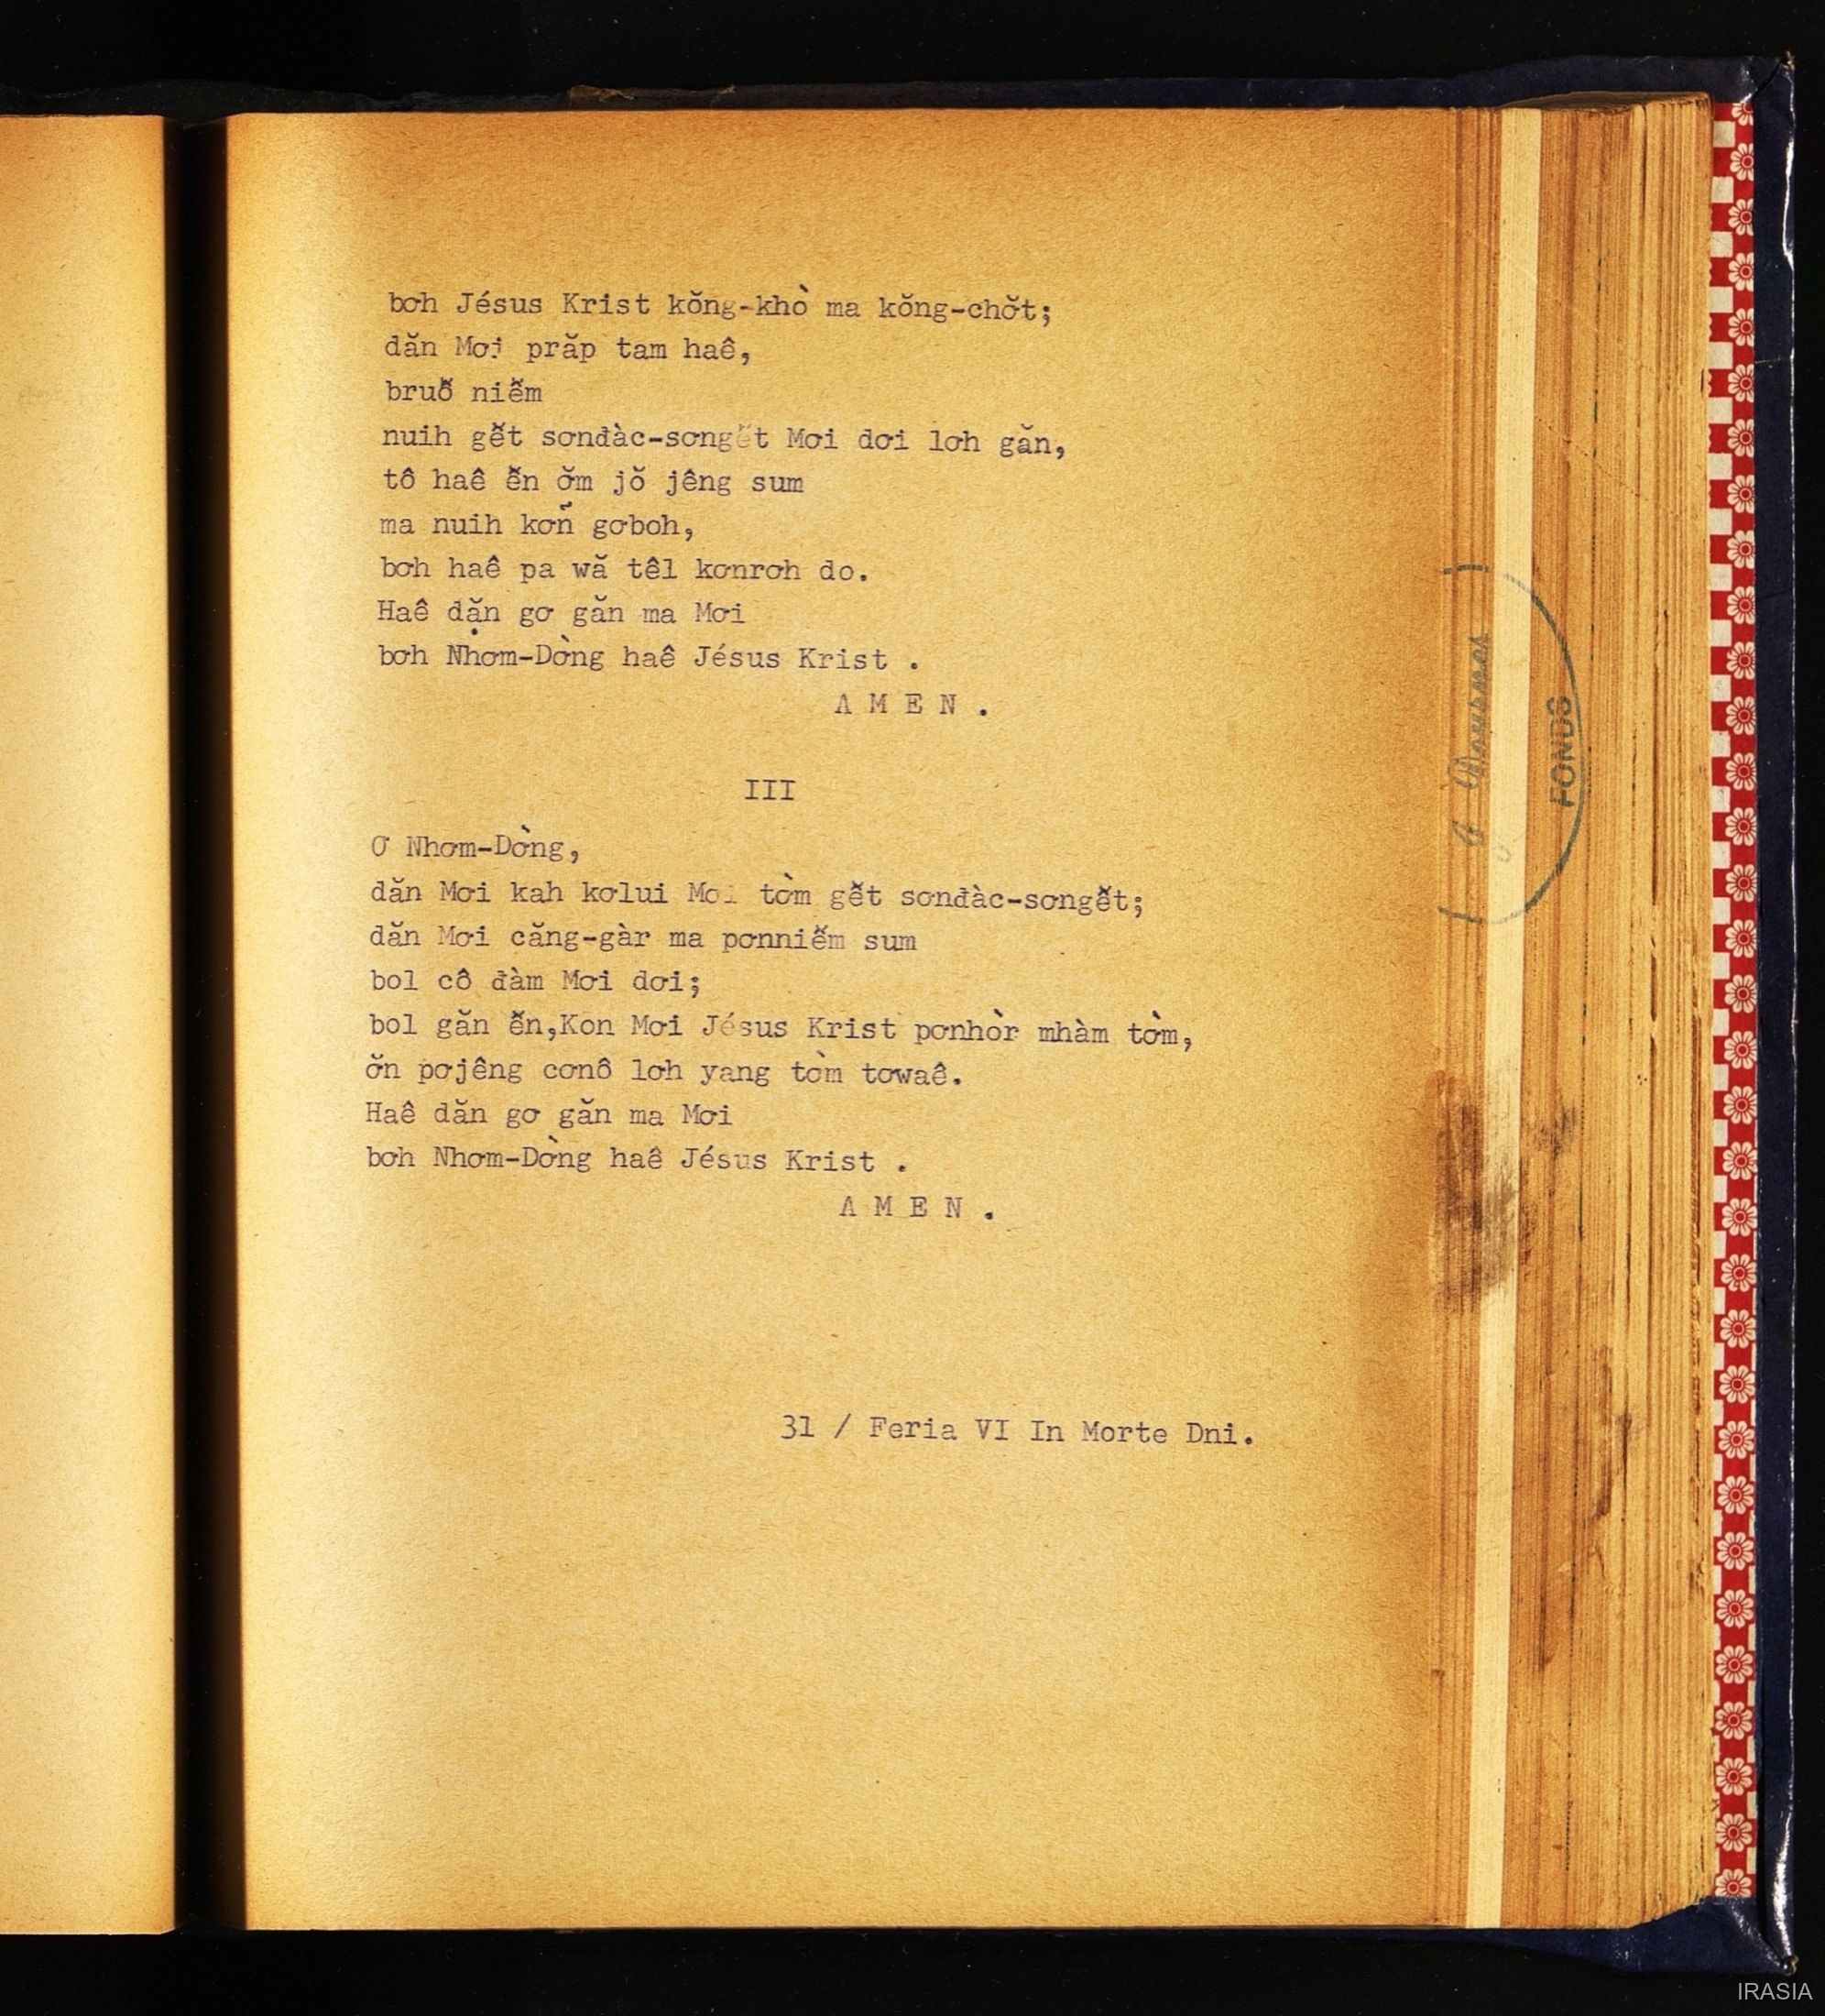 bơh Jésus Krist kŏng-khò ma kŏng-chơ̆t;
dăn Mơi prăp tam haê,
bruô̆ niê̆m
nuih gê̆t sơnđàc-sơngê̆t Mơi dơi lơh găn,
tô haê ê̆n ơ̆m jŏ jêng sum
ma nuih kơn̆ gơboh,
bơh haê pa wă têl kơnrơh do.
Haê dăn gơ găn ma Mơi
bơh Nhơm-Dờng haê Jésus Krist .
A M E N .
III
Ơ Nhơm-Dờng,
dăn Mơi kah kơlui Mơi tờm gê̆t sơnđàc-sơngê̆t;
dăn Mơi căng-gàr ma pơnniê̆m sum
bol cô đàm Mơi dơi;
bol găn ê̆n,Kon Mơi Jésus Krist pơnhòr mhàm tờm,
ơ̆n pơjêng cơnô lơh yang tờm tơwaê.
Haê dăn gơ găn ma Mơi
bơh Nhơm-Dờng haê Jésus Krist .
A M E N .
31 / Feria VI In Morte Dni.
FONDS
IRASIA